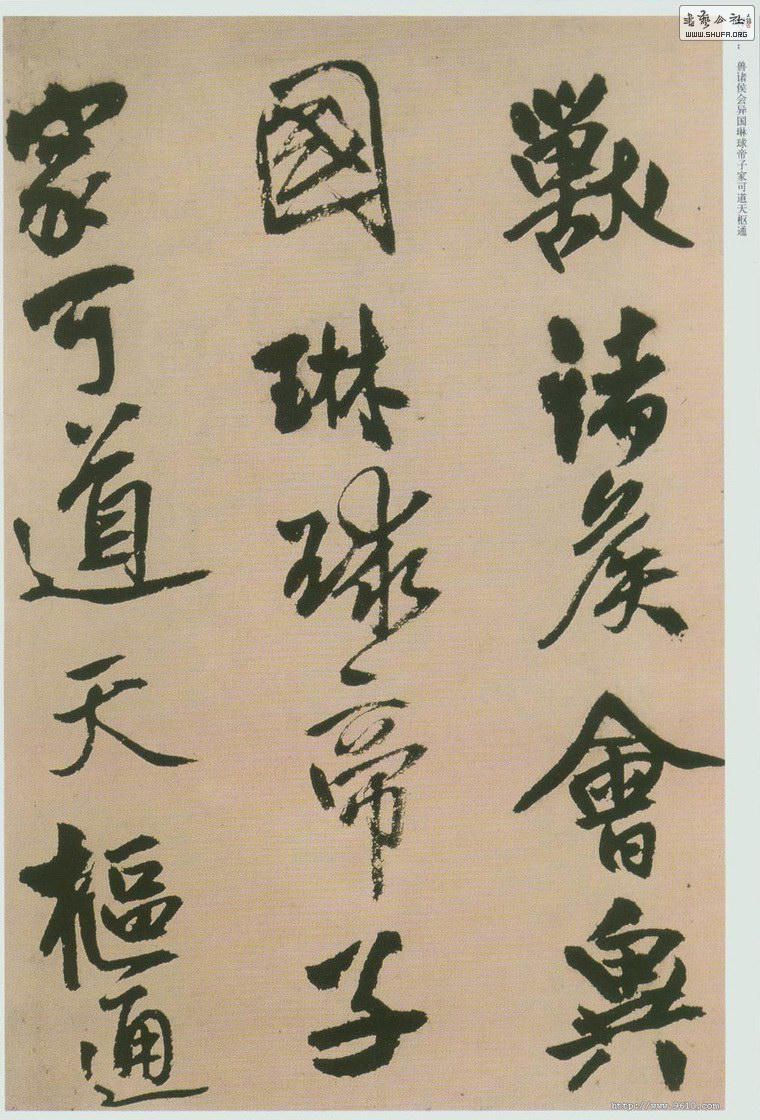 獸諸侯會異
國琳球帝子
家可道天樞通
：兽诸侯会异国琳球帝子家可道天枢通
書藝公社
WWW.SHUFA.ORG
http://www.9610.com